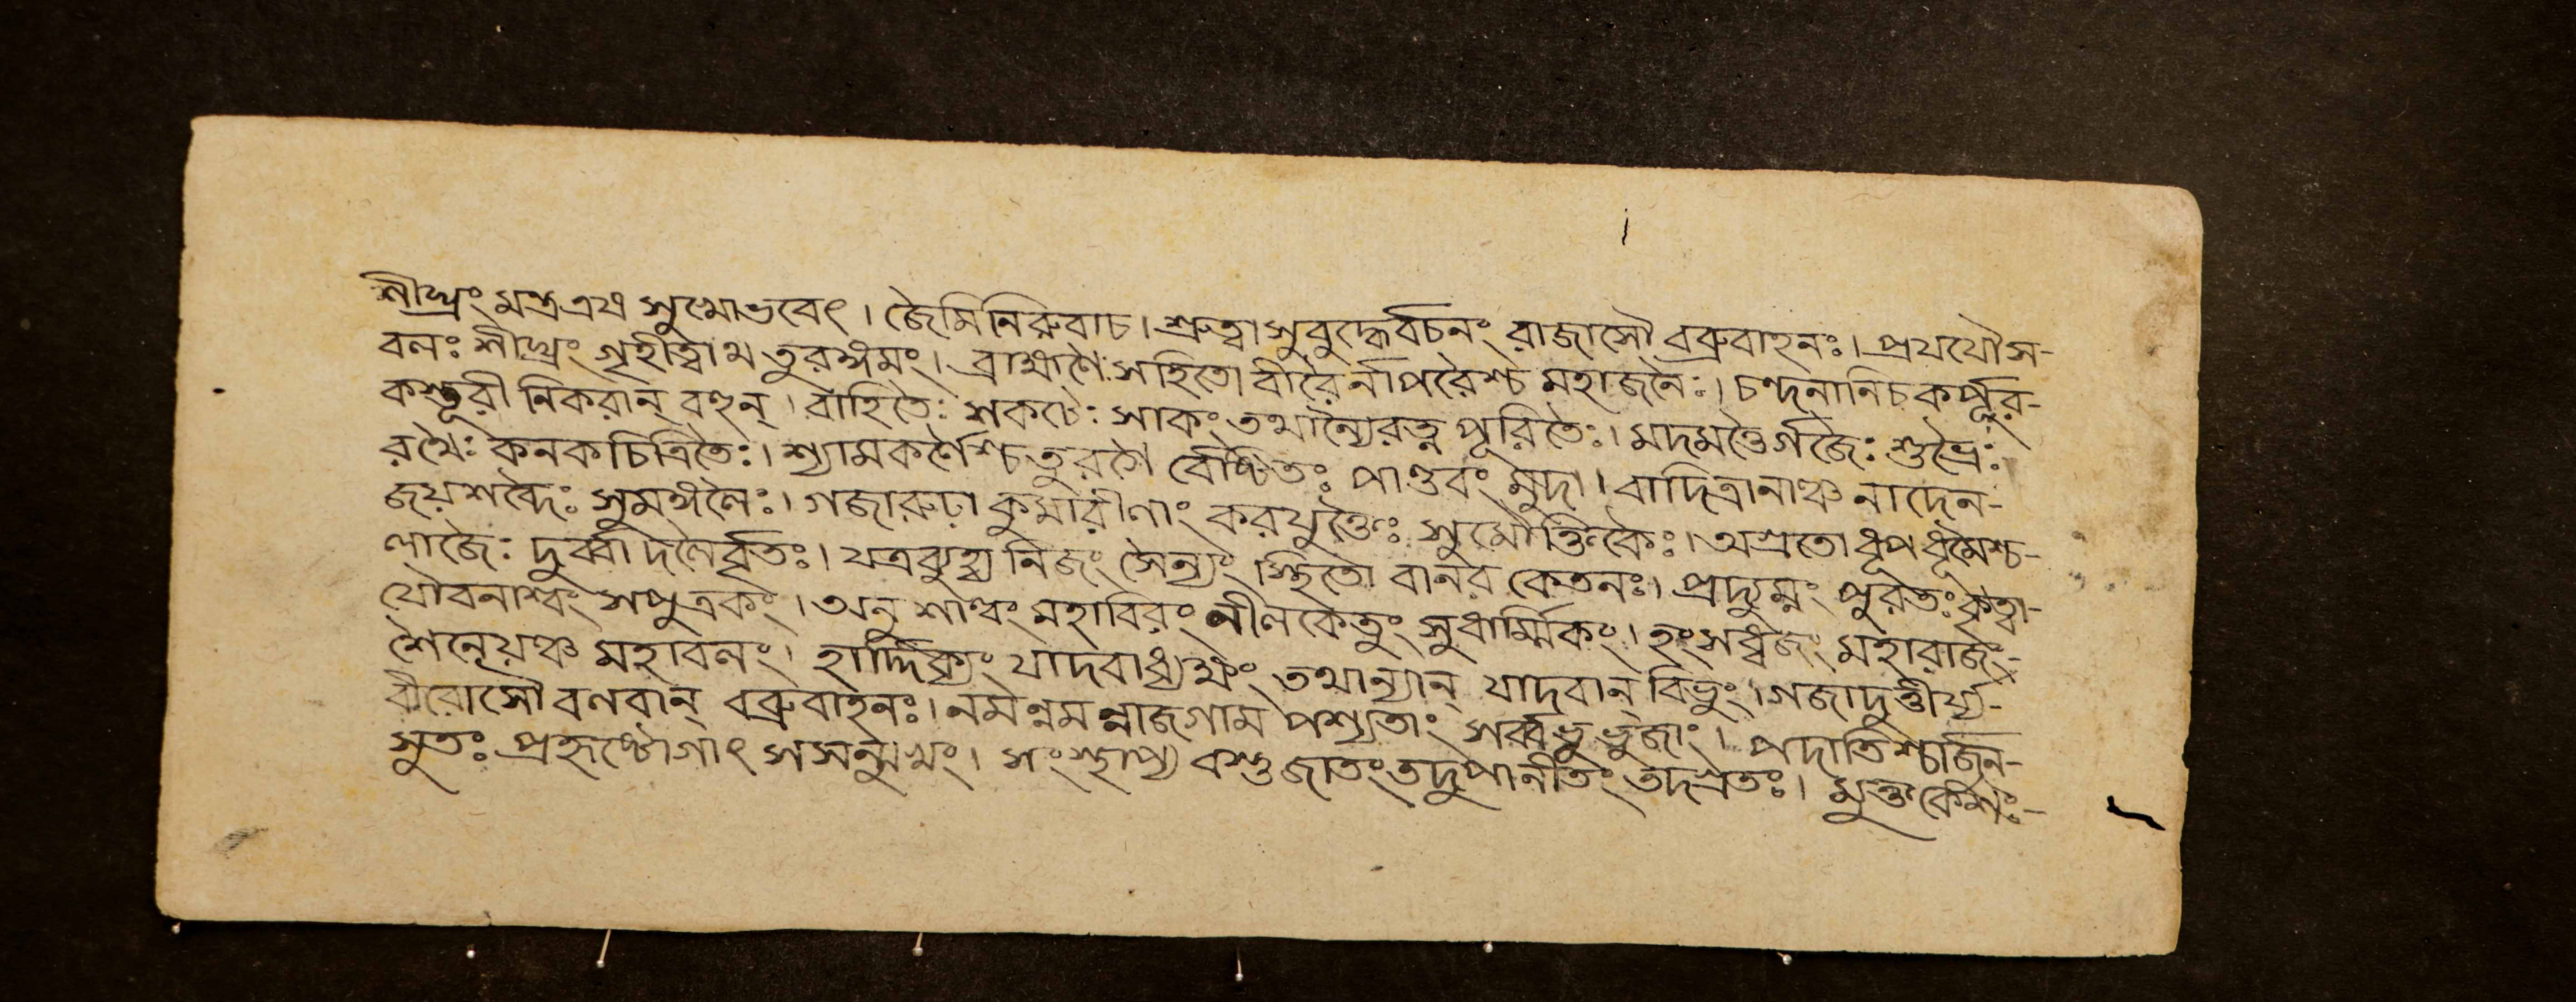 শীঘ্রং মন্ত্র এষ সুখোভবেৎ । জৈমিনিরুবাচ । শ্রুত্বা সুবুদ্ধের্বচনং রাজাসৌ বব্রুবাহনঃ । প্রযযৌস-
বলঃ শীঘ্রং গৃহীত্বাথ তুরঙ্গমং । ব্রাহ্মণৈঃ সহিতো বীরৈর্নাপরৈশ্চ মহাজনৈঃ । চন্দনানিচ কর্পূর-
কস্তূরী নিকরান্ বহুন্ । বাহিতৈঃ শকটৈঃ সাকং তথান্যৈরত্ন পূরিতৈঃ । মদমত্তৈর্গজৈঃ শুভ্রৈঃ
রথৈঃ কনকচিত্রিতৈঃ । শ্যামকর্ণৈশ্চতুরগৈ র্বেষ্টিতঃ পাণ্ডবং মুদা । বাদিত্রানাঞ্চ নাদেন-
জয়শব্দৈঃ সুমঙ্গলৈঃ । গজারুঢ়া কুমারীণাং করযুক্তৈঃ সুমৌক্তিকৈঃ । অগ্রতো ধূপ ধূমৈশ্চ-
লাজৈঃ দুর্ব্বাদলৈর্বৃতঃ । যত্রব্যুহ্য নিজং সৈন্যং স্থিতো বানর কেতনঃ । প্রদ্যুম্নং পুরতঃ কৃত্বা-
যৌবনাশ্বং সপুত্রকং । অনুশাল্বং মহাবিরং নীলকেতুং সুধার্ম্মিকং । হংসধ্বজং মহারাজং-
শৈনেয়ঞ্চ মহাবলং । হার্দ্দিক্যং যাদবাধ্যক্ষং তথান্যান্ যাদবান্ বিভুং । গজাদুত্তীর্য্য-
বীরোসৌ বলবান্ বব্রুবাহনঃ । নমন্নমন্নাজগাম পশ্যতাং সর্ব্বভূভুজাং । পদাতিশ্চার্জুন-
সুতঃ প্রহৃষ্টোগাৎ সসন্মুখং । সংস্থাপ্য বস্তুজাতং তদুপানীতং তদগ্রতঃ । মুক্তকেশঃ-